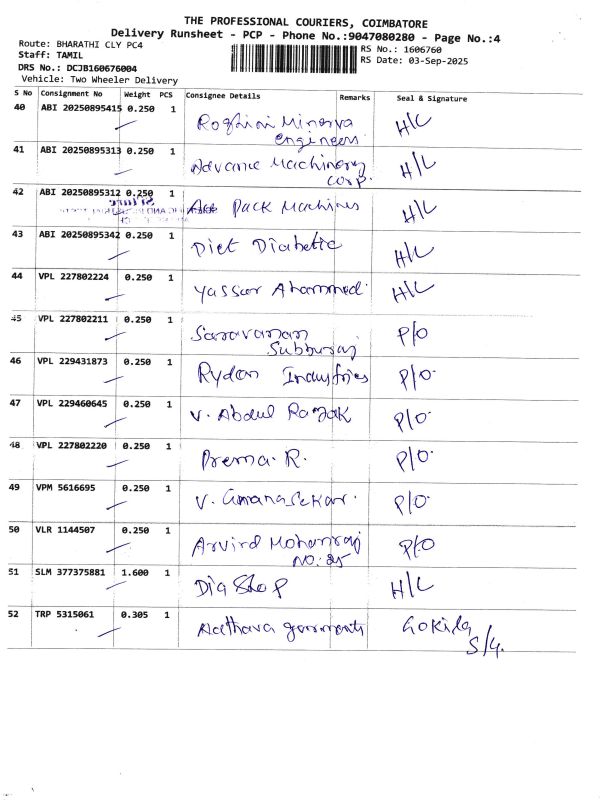 THE PROFESSIONAL COURIERS, COIMBATORE
Delivery Runsheet - PCP - Phone No.:9047080280 - Page No.:4
Route: BHARATHI CLY PC4
Staff: TAMIL
DRS No.: DCJB160676004
Vehicle: Two Wheeler Delivery
RS No.: 1606760
RS Date: 03-Sep-2025
S No Consignment No Weight PCS Consignee Details Remarks Seal & Signature
40 ABI 20250895415 0.250 1 Roghini Minerva H/L
Engineers
41 ABI 20250895313 0.250 1 Advance Machinery H/L
Corp.
42 ABI 20250895312 0.250 1 Ace Pack Machines H/L
43 ABI 20250895342 0.250 1 Diet Diabetic H/L
44 VPL 227802224 0.250 1 Yassar Ahammed H/L
45 VPL 227802211 0.250 1 Saravanan P/O
Subburaj
46 VPL 229431873 0.250 1 Rydon Industries P/O
47 VPL 229460645 0.250 1 V. Abdul Razak P/O
48 VPL 227802220 0.250 1 Prema. R. P/O
49 VPM 5616695 0.250 1 V. P/O
50 VLR 1144507 0.250 1 Arvind Mohanraj P/O
NO: 25
51 SLM 377375881 1.600 1 Dia Shop H/L
52 TRP 5315061 0.305 1 garments Gokila
S/4.